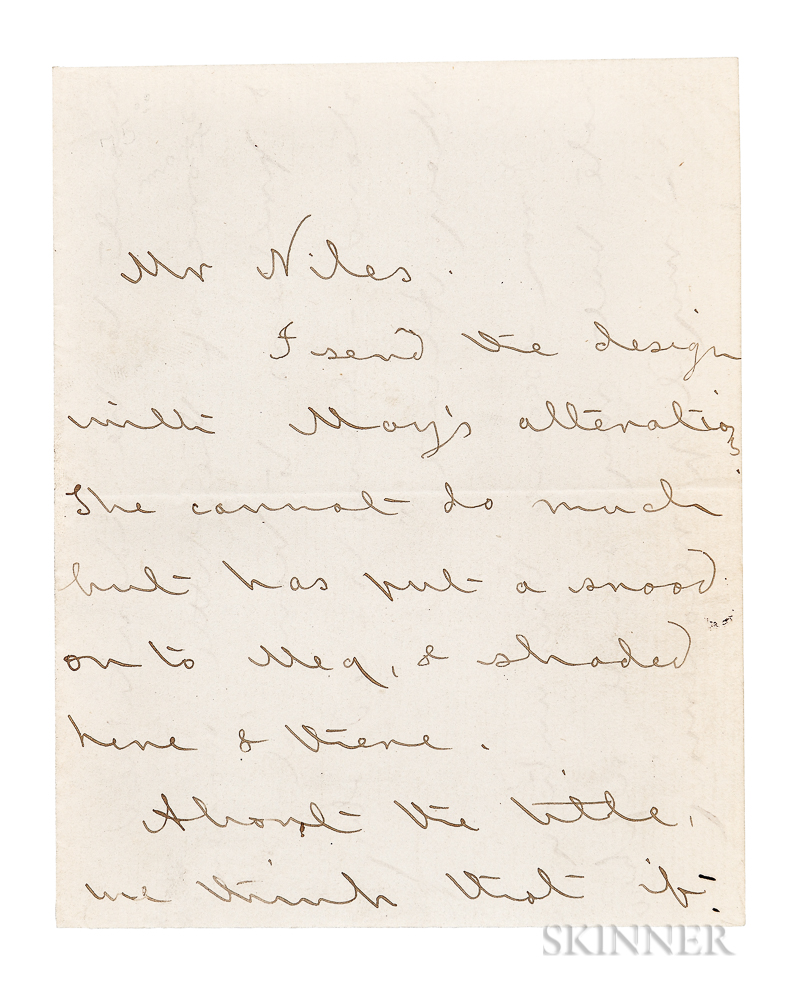 Mr Niles.
I send the design
with May's alterations.
She cannot do much
but has put a snood
on to Meg, & shaded
here & there.
About the title,
we think that if
SKINNER